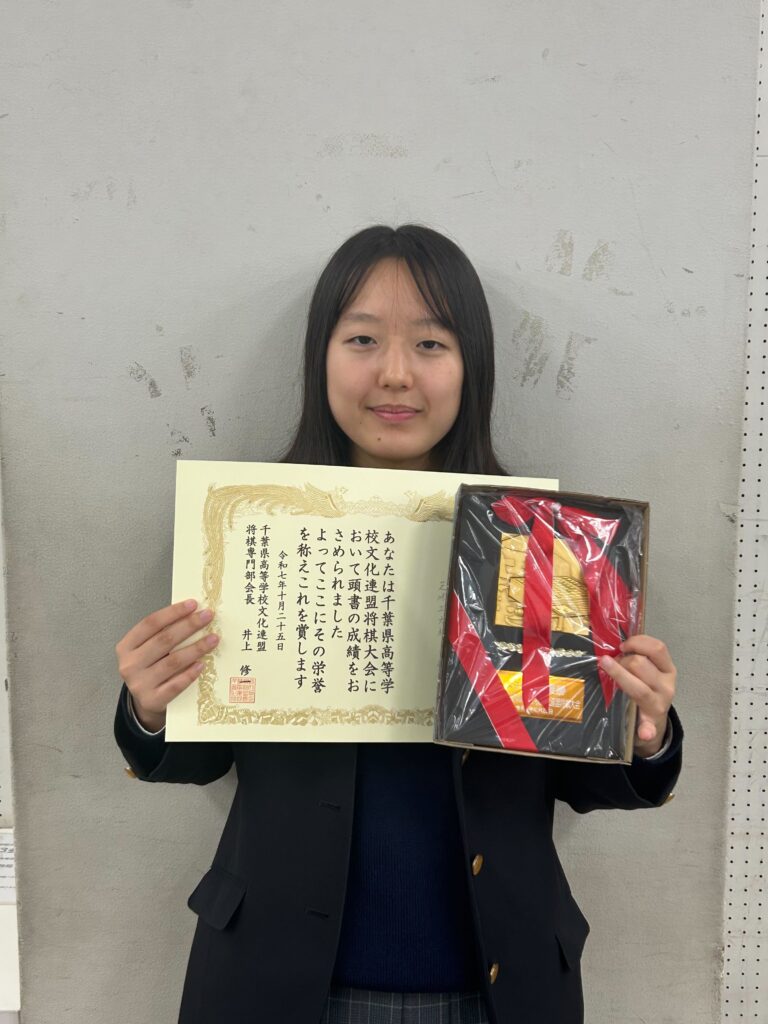 あなたは千葉県高等学
校文化連盟将棋大会に
おいて頭書の成績をお
さめられました
よってここにその栄誉
を称えこれを賞します
令和七年十月二十五日
千葉県高等学校文化連盟
将棋専門部会長 井上 修